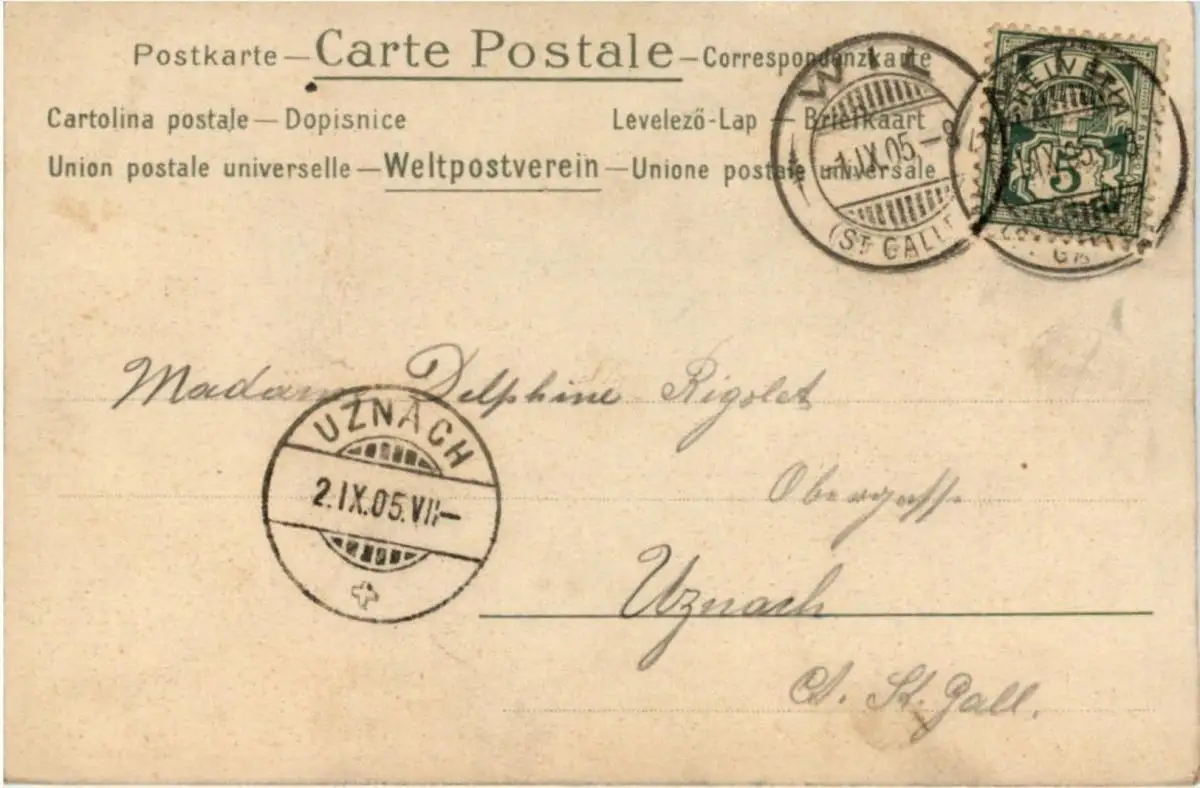 Postkarte — Carte Postale — Correspondenzkarte
Cartolina postale — Dopisnice Levelező-Lap — Briefkaart
Union postale universelle — Weltpostverein — Unione postale universale
WIL
1.IX.05.-8
(ST. GALLE
HELVETIA
5
Madame Delphine Rigolet
UZNACH
2.IX.05.VII-
Obergasse
Uznach
Ct. St. Gall.